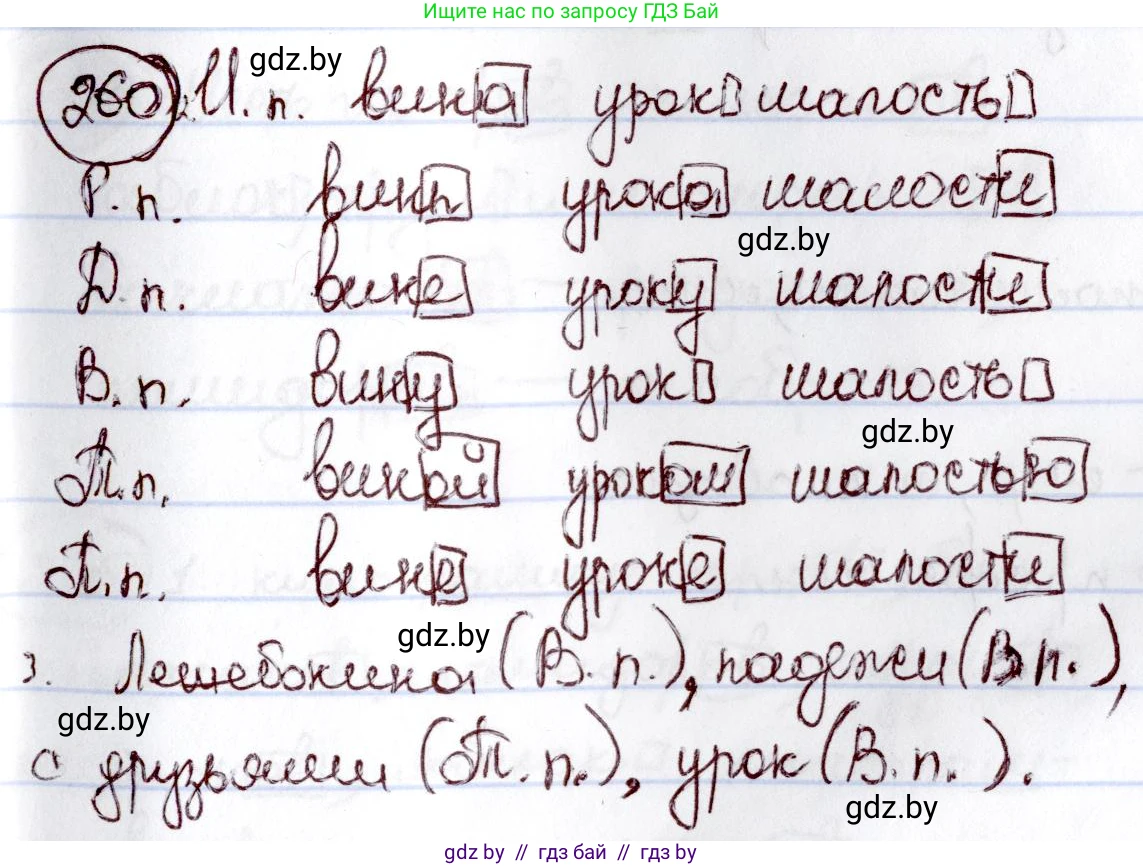 Ищите нас по запросу ГДЗ Бай
gdz.by
260 2. И. п. вина урок шалость
Р. п. вины урока шалости
gdz.by
Д. п. вине уроку шалости
В. п. вину урок шалость
gdz.by
Т. п. виной уроком шалостью
П. п. вине уроке шалости
gdz.by
3. Лежебокина (В. п.), падежи (В. п.),
gdz.by
с друзьями (Т. п.), урок (В. п.).
gdz.by
gdz.by // гдз бай // gdz by